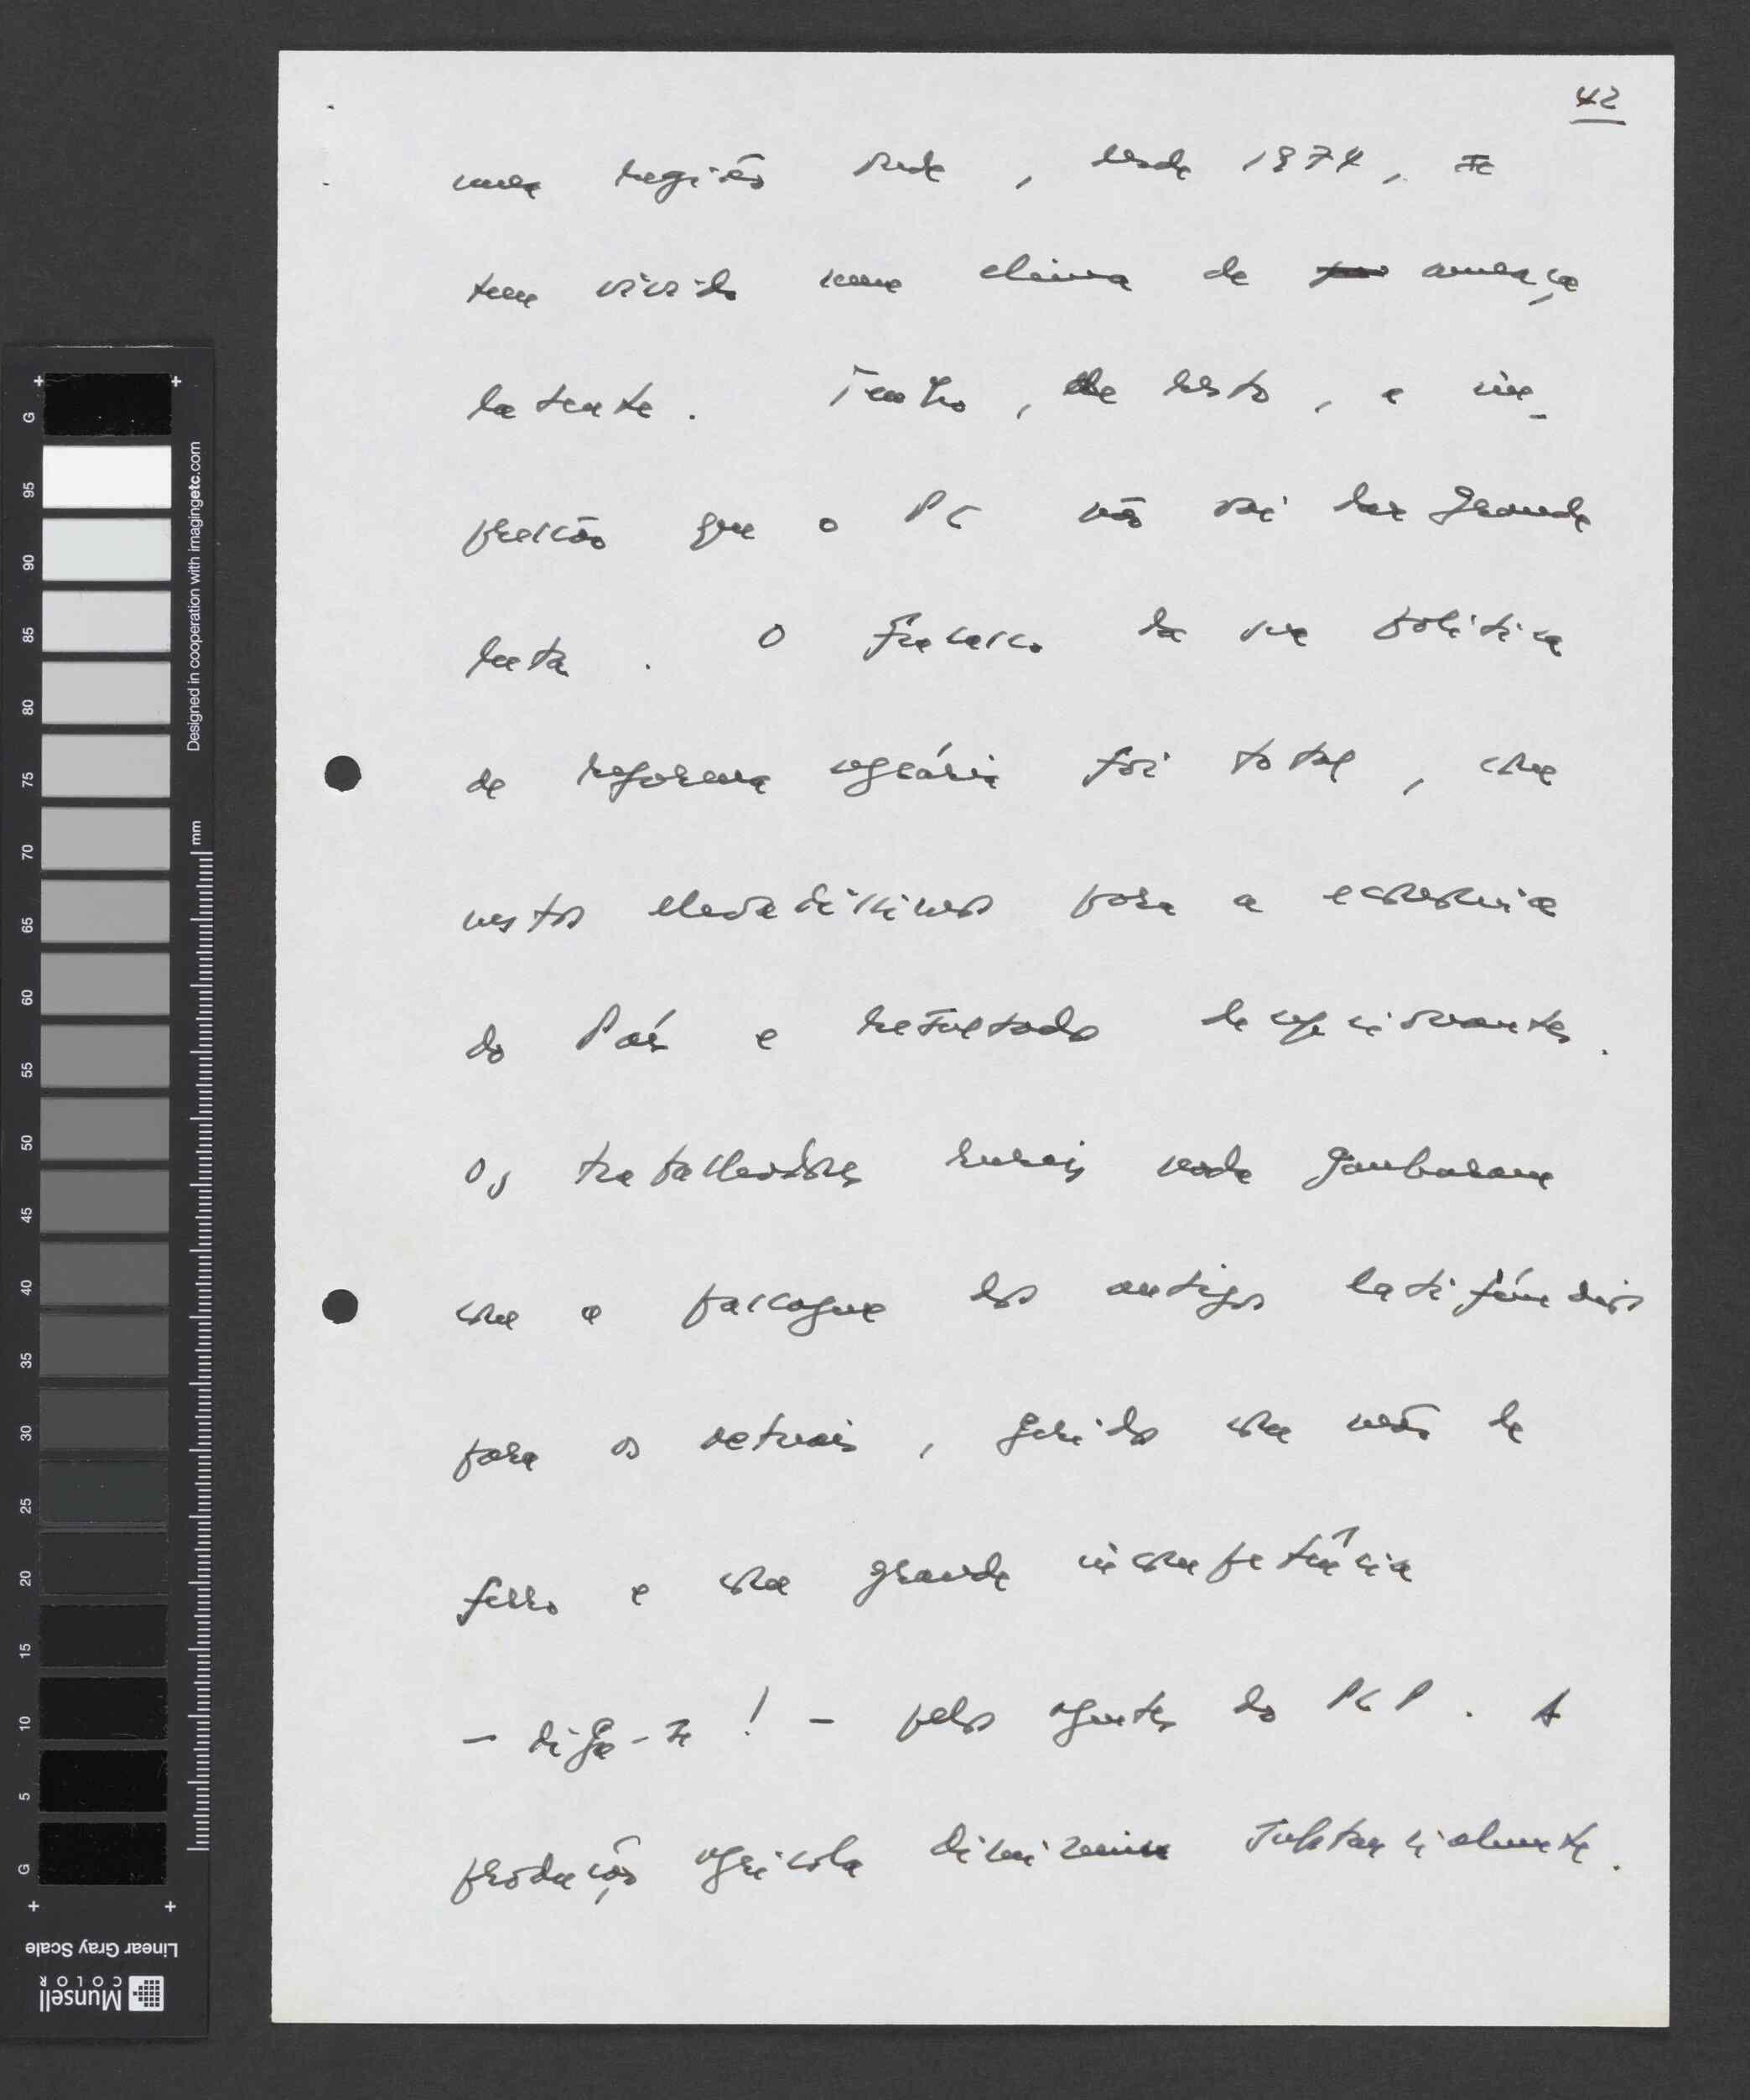 42
numa região onde, desde 1974, se
tem vivido num clima de ameaça
latente. Tenho, de resto, a im-
pressão que o PC não vai dar grande
luta. O fracasso da sua política
de reforma agrária foi total, com
custos elevadíssimos para a economia
do País e resultados decepcionantes.
Os trabalhadores rurais nada ganharam
com a passagem dos antigos latifúndios
para os actuais, geridos com mão de
ferro e com grande incompetência
- diga-se! - pelos agentes do PCP. A
produção agrícola diminuiu substancialmente.
G
95
90
85
80
75
70
65
60
55
50
45
40
35
30
25
20
15
10
5
G
Designed in cooperation with imagingetc.com
mm
Linear Gray Scale
Munsell
COLOR